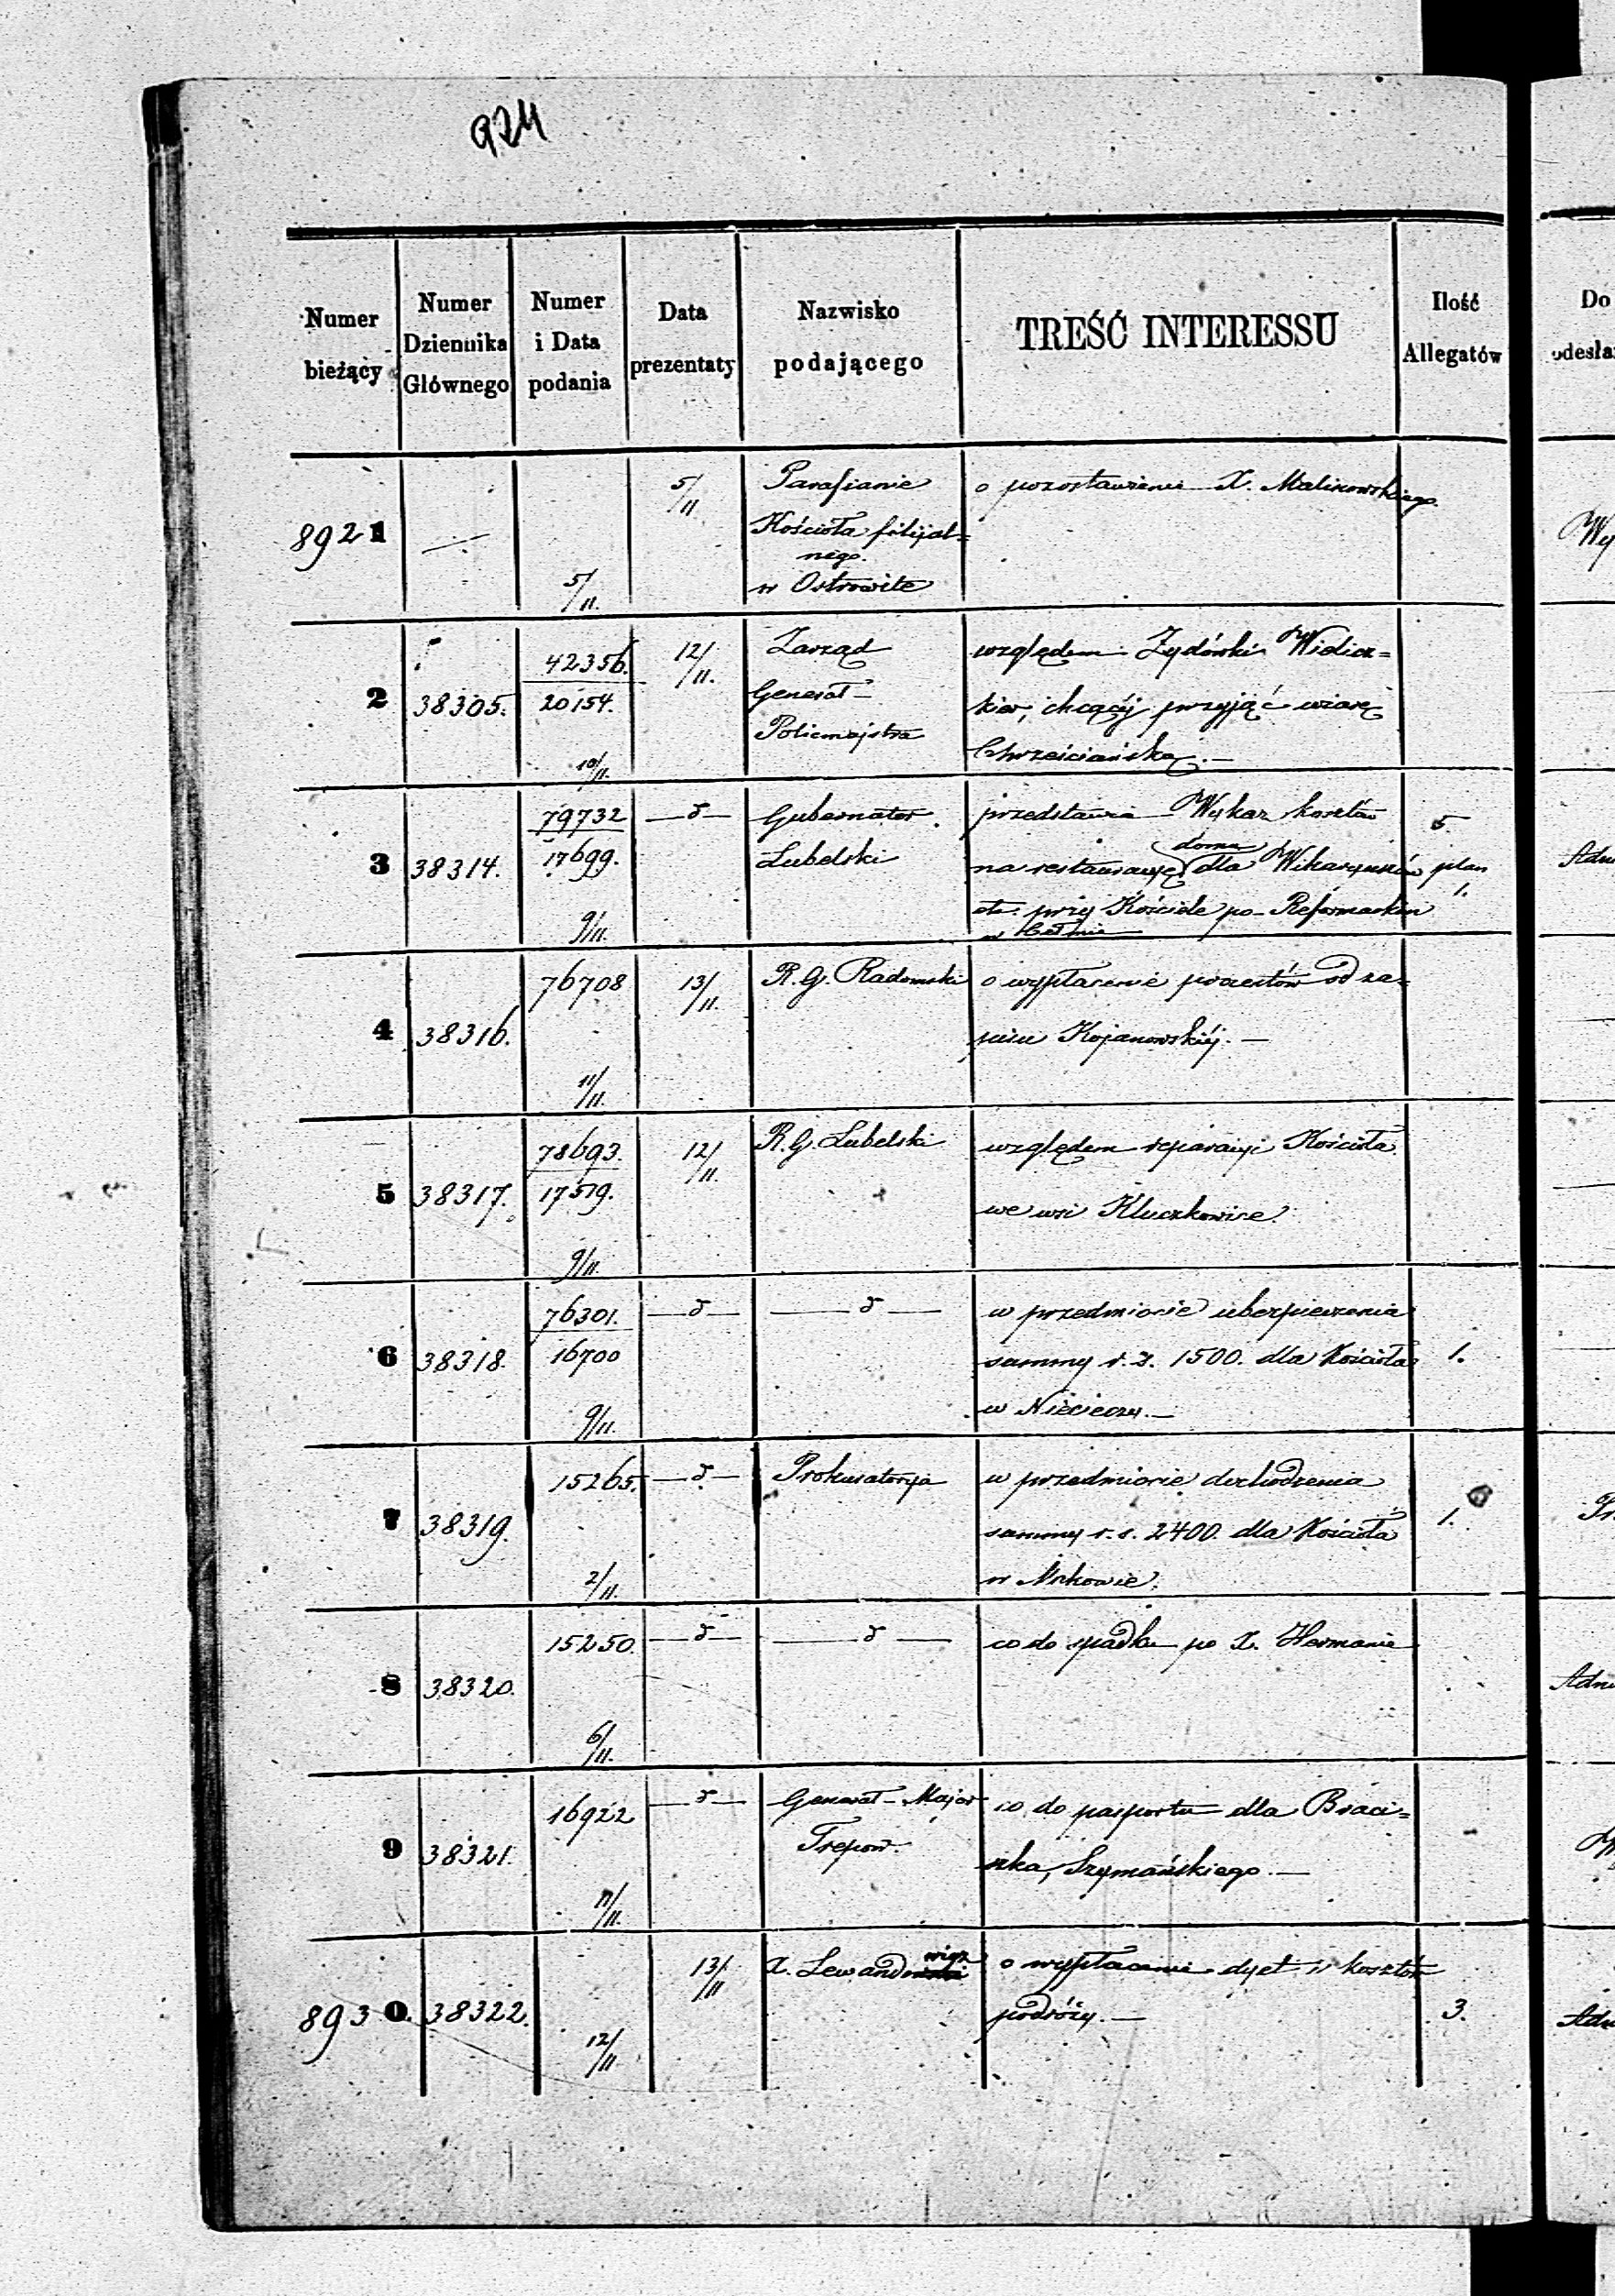 924
Numer bieżący
Numer Dziennika Głównego
Numer i Data podania
Data prezentaty
Nazwisko podającego
TREŚĆ INTERESSU
Ilość Allegatów
Do
odesła
8921
5/11
5/11.
Parafianie
Kościoła filijal=
nego
w Ostrowite
o pozostawienie X. Malinowskiego.
Wy
2
38305.
42356.
20154.
10/11.
12/11.
Zarząd
Generał-
Policmajstra
względem Żydówki
chcącéj przyjąć wiarę
Chrześciańską.—
3
38314.
79732
17699.
9/11.
—d—
Gubernator
Lubelski
przedstawia Wykaz kosztów
na restauracyę domu dla Wikaryuszów
etc. przy Kościele po-Reformackim
w
5.
plan
1.
Adm
4
38316.
76708
11/11.
13/11.
R. G. Radomski
o wypłacenie procentów od za=
pisu Kojanowskiéj.—
5
38317.
78693.
17519.
9/11.
12/11.
R. G. Lubelski
względem reparacyi Kościoła
we wsi Kluczkowice.
6
38318.
76301.
16700
9/11.
—d—
—d—
w przedmiocie ubezpieczenia
summy r. s. 1500. dla Kościoła
w Niecieczy.—
1.
7
38319.
15265.
2/11.
—d—
Prokuratorya
w przedmiocie dochodzenia
summy r. s. 2400. dla Kościoła
w
1.
Pr
8
38320.
15250.
6/11.
—d—
—d—
co do spadku po X. Hermanie
Adm
9
38321.
16922
11/11.
—d—
Generał-Major
Trepow.
co do pasportu dla Braci=
szka, Szymańskiego.—
8930.
38322.
12/11
13/11
X. Lewandowicz
o wypłacenie dyet i kosztów
podróży.—
3.
Adm